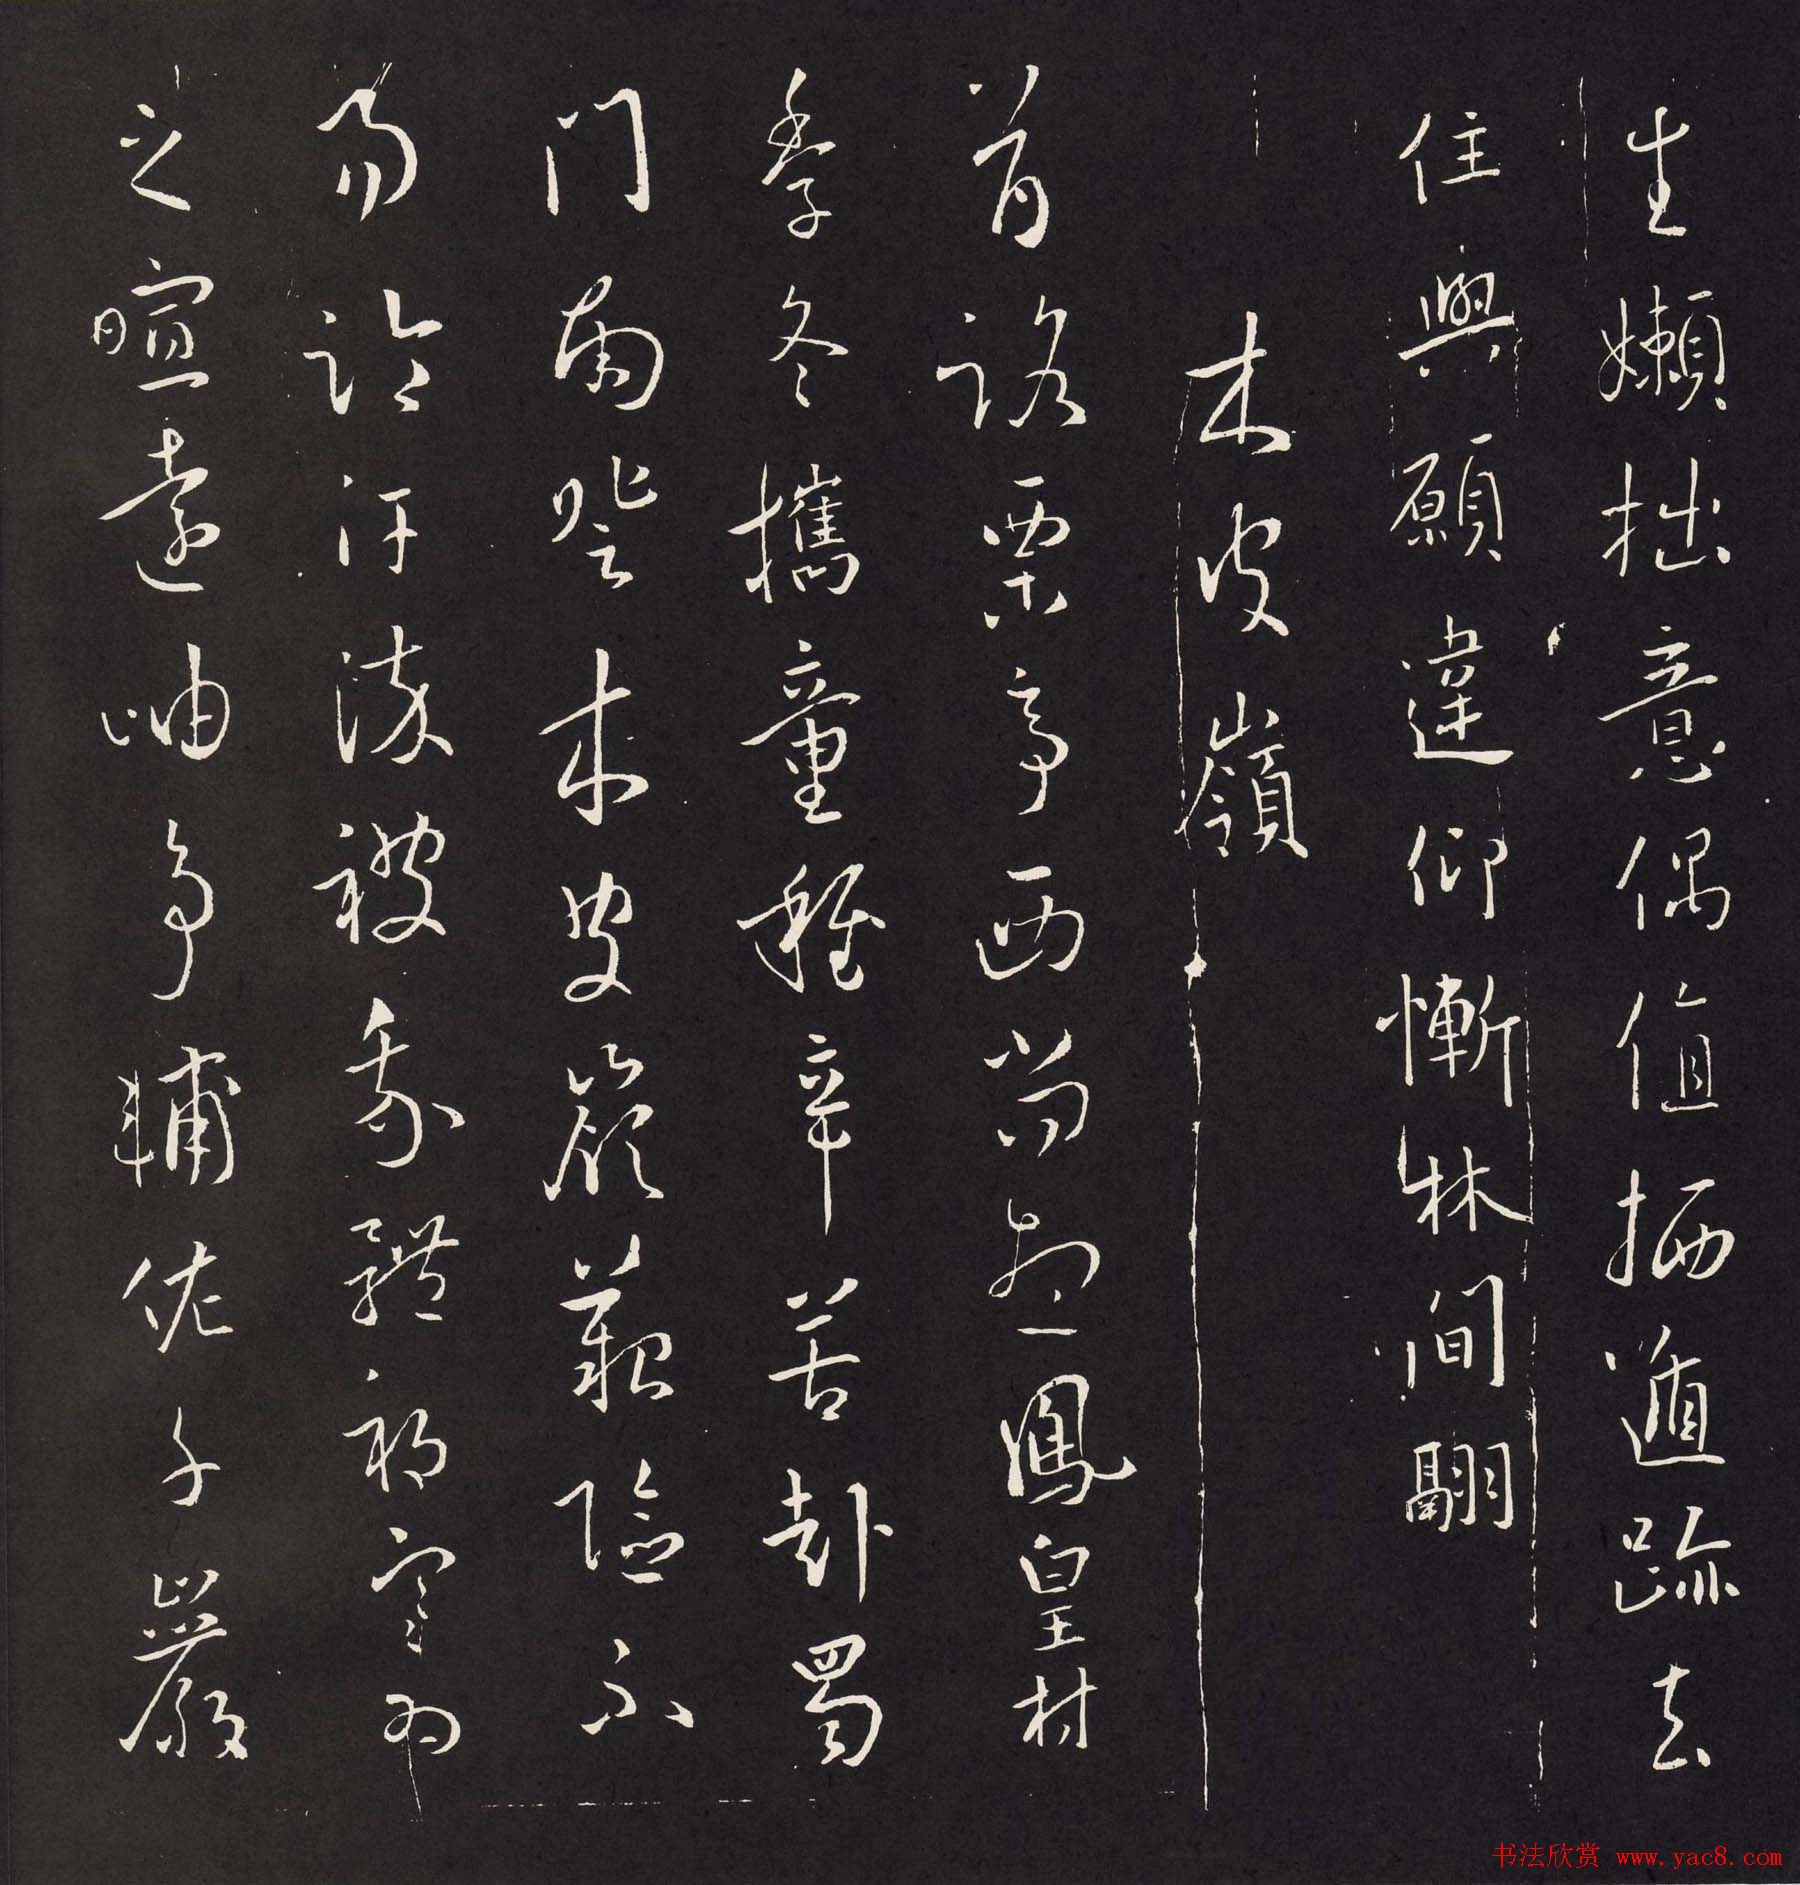 生嬾拙意偶值栖遁跡去
住與願違仰慚林間翮
木皮嶺
首路栗亭西尚想鳳皇村
季冬攜童稚辛苦赴蜀
門南登木皮嶺艱險不
易論汗流被我體祁寒為
之暄遠岫爭輔佐千巖
书法欣赏 www.yac8.com